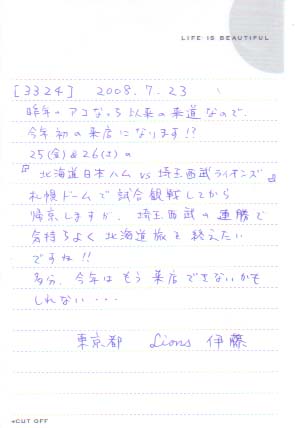 LIFE IS BEAUTIFUL
[3324] 2008.7.23
昨年のアコなっち以来の来道なので、
今年初の来店になります!?
25(金)&26(土)の
『北海道日本ハム vs 埼玉西武ライオンズ』
札幌ドームで試合観戦してから
帰京しますが、埼玉西武の連勝で
気持ちよく北海道旅を終えたい
ですね!!
多分、今年はもう来店できないかも
しれない・・・
東京都 Lions 伊藤
◂CUT OFF